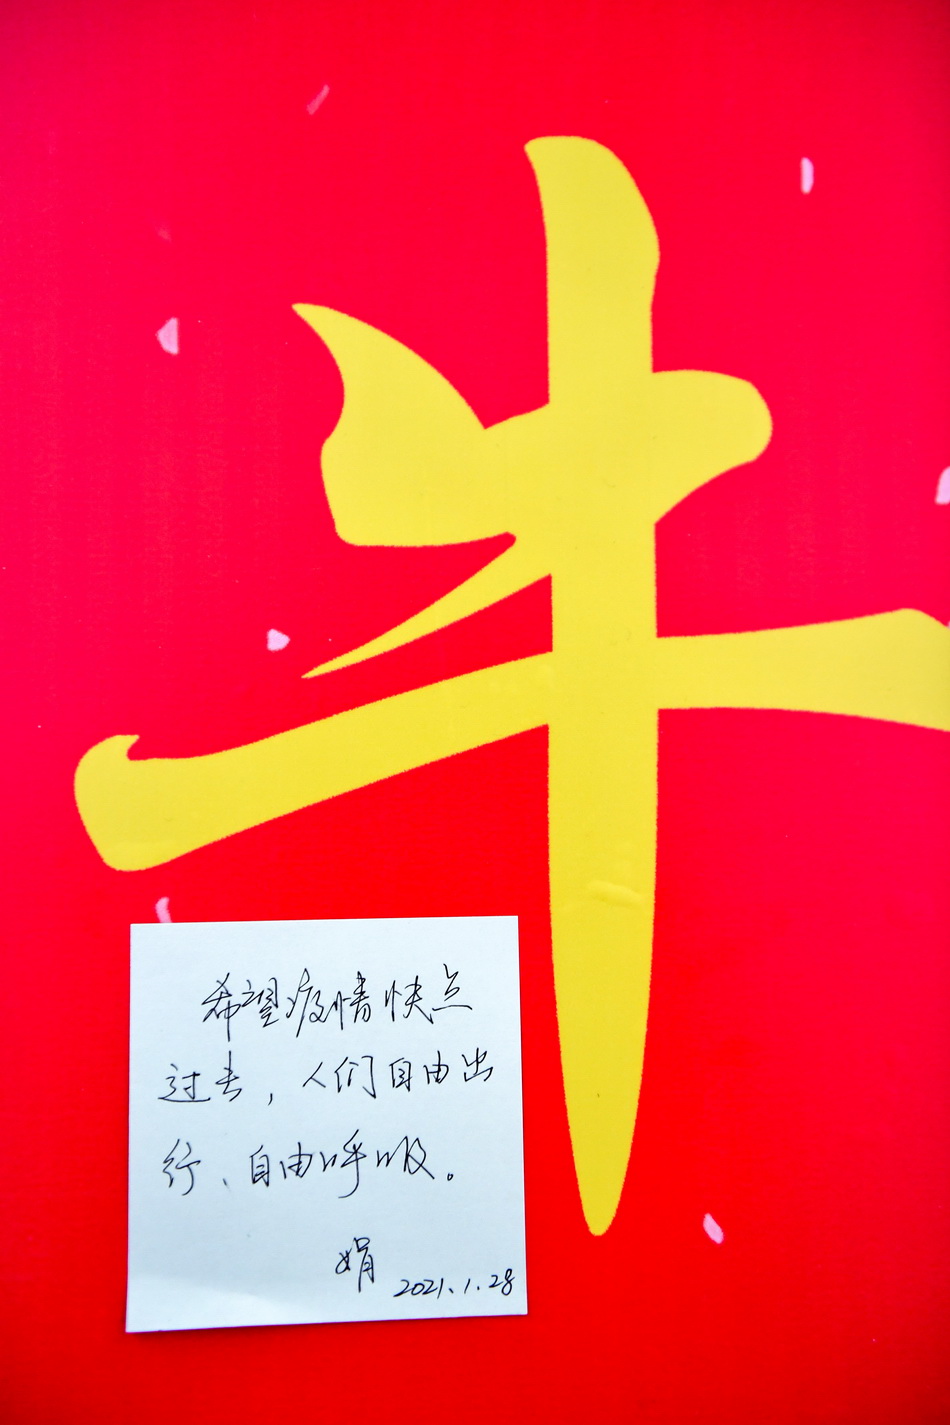 牛
希望疫情快点
过去，人们自由出
行、自由呼吸。
娟
2021.1.28